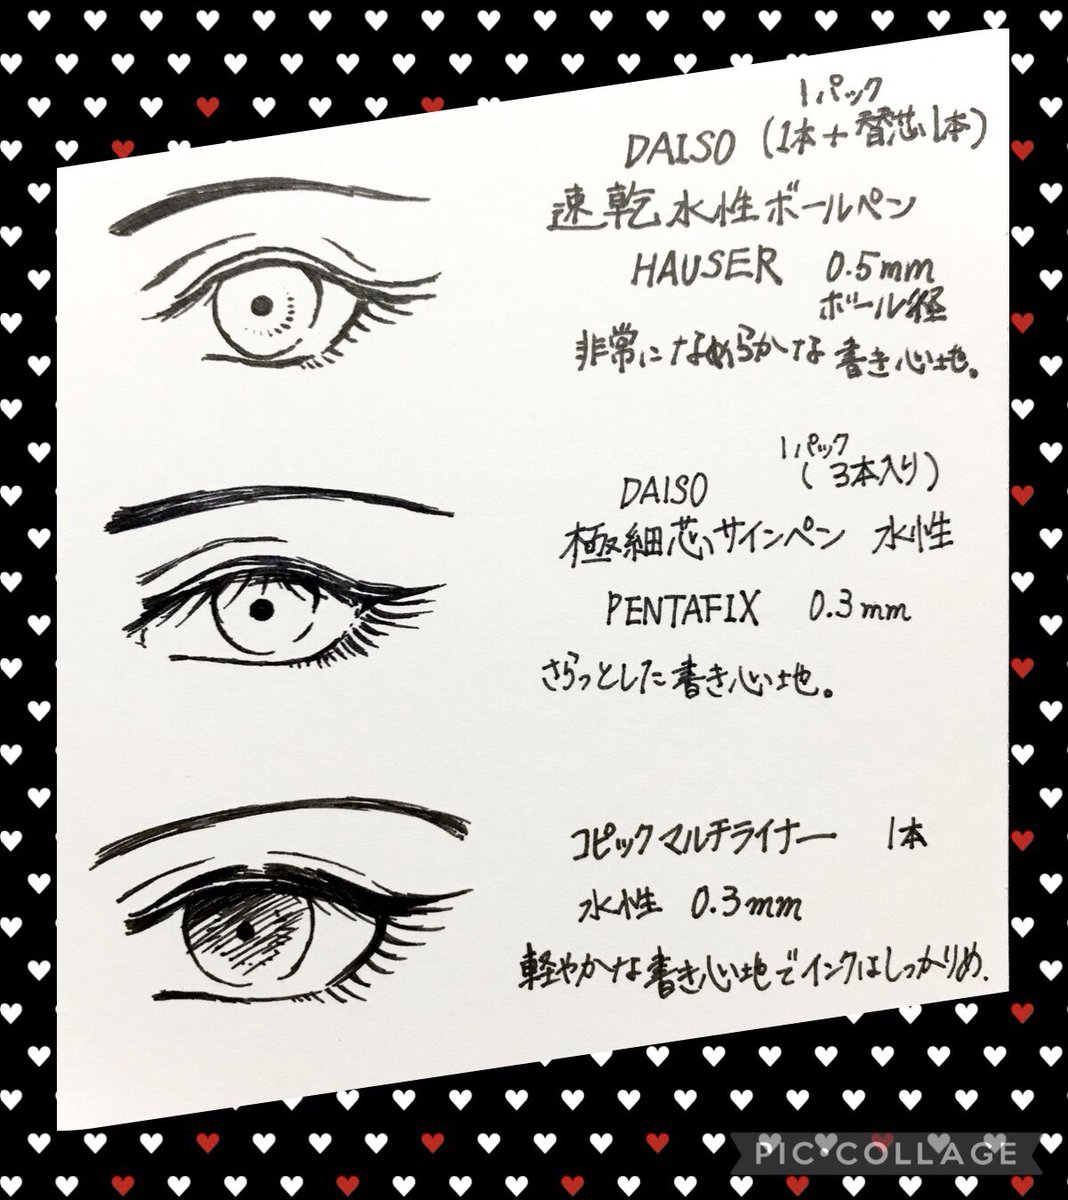 1パック
DAISO (1本+替芯1本)
速乾水性ボールペン
HAUSER 0.5mm
ボール径
非常になめらかな書き心地。
1パック
DAISO (3本入り)
極細芯サインペン 水性
PENTAFIX 0.3mm
さらっとした書き心地。
コピックマルチライナー 1本
水性 0.3mm
軽やかな書き心地でインクはしっかりめ.
PIC•COLLAGE